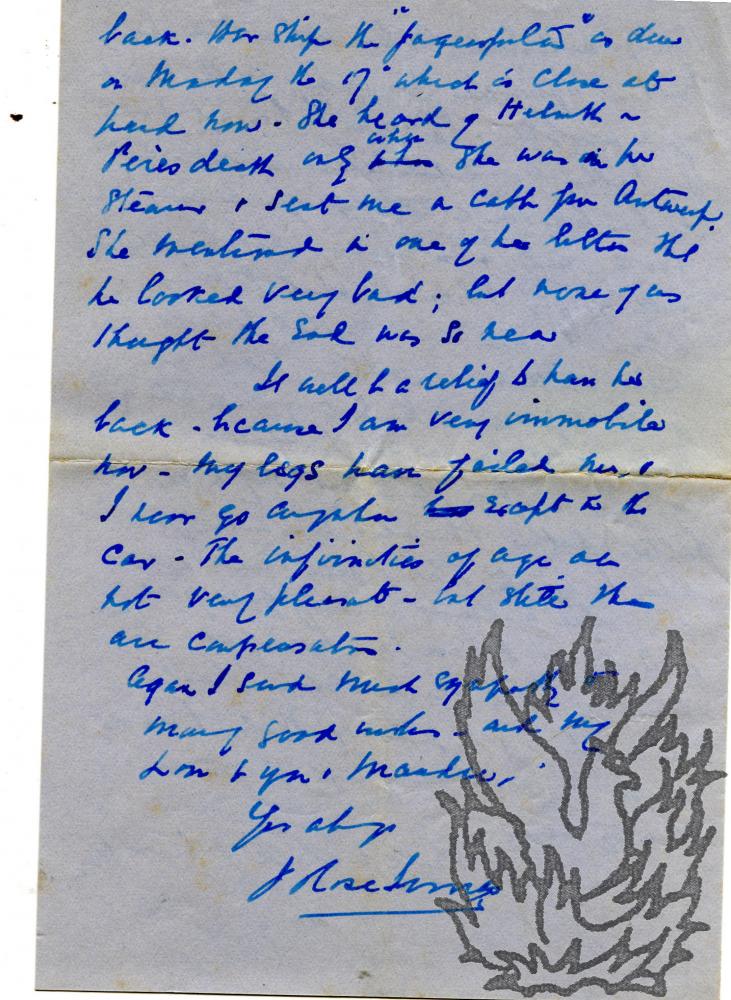 back. Her ship the "Jagersfontein" is due
on Monday the 17th which is close at
hand now. She heard of Helmuth
death only when when She was in her
Steamer & sent me a cable from Antwerp.
She mentioned in one of her letters that
he looked very bad; but none of us
thought the End was so near
It will be a relief to have her
back - because I am very immobile
now - My legs have failed me, &
I never go anywhere Except in the
car - The infirmities of age are
not very pleasant - but still there
are compensations.
Again I send much sympathy &
many good wishes - and my
Love to you &
Yrs always